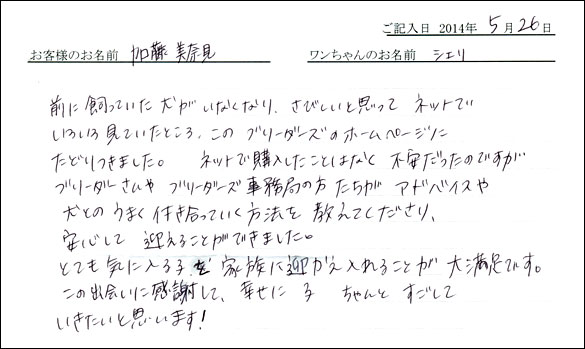 ご記入日 2014年 5月 26日
お客様のお名前 加藤 美奈見 ワンちゃんのお名前 シェリ
前に飼っていた犬がいなくなり、さびしいと思って ネットで
いろいろ見ていたところ、この ブリーダーズのホームページに
たどりつきました。 ネットで購入したことはなく 不安だったのですが
ブリーダーさんや ブリーダーズ事務局の方たちが アドベイスや
犬とのうまく付き合っていく方法を 教えてくださり、
安心して 迎えることができました。
とても気に入る子を 家族に迎かえ入れることが 大満足です。
この出会いに感謝して、幸せに 子 ちゃんと すごして
いきたいと思います!